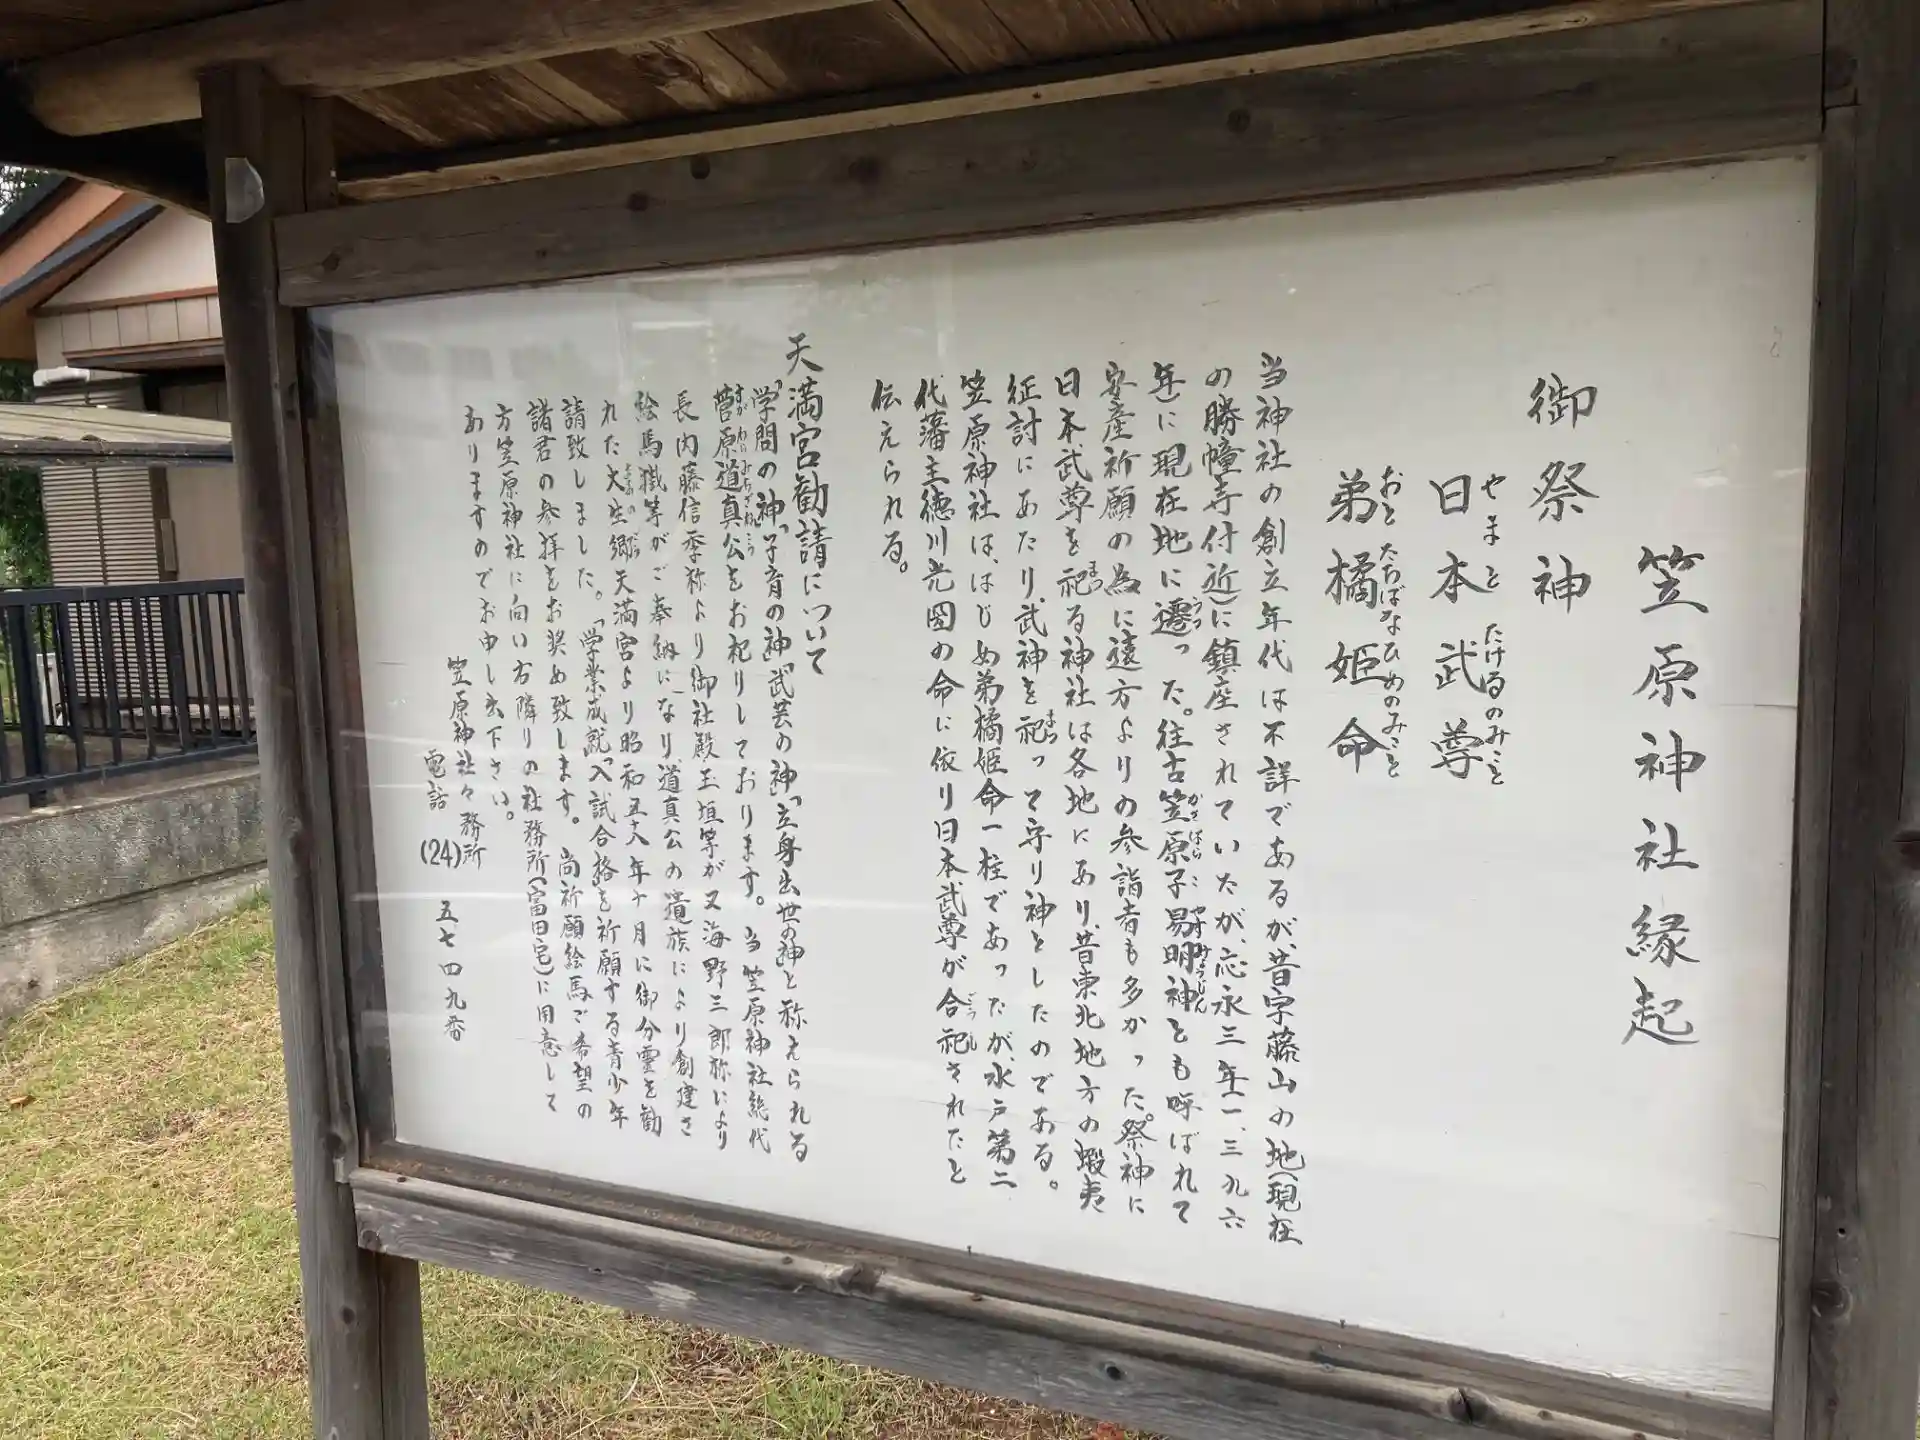 笠原神社縁起
御祭神
日本武尊
やまと たけるのみこと
弟橘姫命
おと たちばなひめのみこと
当神社の創立年代は不詳であるが、昔字藤山の地(現在
の勝幢寺付近)に鎮座されていたが、応永三年(一、三九六
年)に現在地に遷った。往古笠原子易明神とも呼ばれて
うつ かさはらこやすみょうじん
安産祈願の為に遠方よりの参詣者も多かった。祭神に
日本武尊を祀る神社は各地にあり、昔東北地方の蝦夷
まつ
征討にあたり、武神を祀って守り神としたのである。
まつ
笠原神社は、はじめ弟橘姫命一柱であったが、水戸第二
代藩主徳川光圀の命に依り日本武尊が合祀されたと
ごうし
伝えられる。
天満宮勧請について
「学問の神」「子育の神」「武芸の神」「立身出世の神」と称えられる
菅原道真公をお祀りしております。当笠原神社総代
すがわらみちざねこう
長内藤信季称より御社殿玉垣等が又海野三郎称により
絵馬掛等がご奉納になり道真公の遺族により創建さ
れた大生郷天満宮より昭和五十八年十月に御分霊を勧
おおのごう
請致しました。「学業成就」「入試合格」を祈願する青少年
諸君の参拝をお奨め致します。尚祈願絵馬ご希望の
方笠原神社に向い右隣りの社務所(富田宅)に用意して
ありますのでお申し出下さい。
笠原神社々務所
電話 (24) 五七四九番